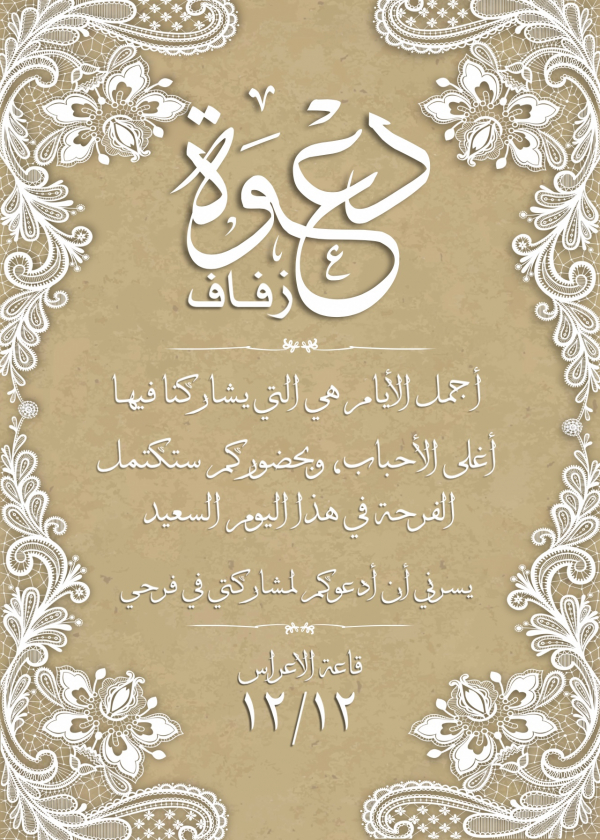 دعوة
زفاف
أجمل الأيام هي التي يشاركنا فيها
أغلى الأحباب، وبحضوركم ستكتمل
الفرحة في هذا اليوم السعيد
يسرني أن أدعوكم لمشاركتي في فرحي
قاعة الاعراس
١٢/١٢